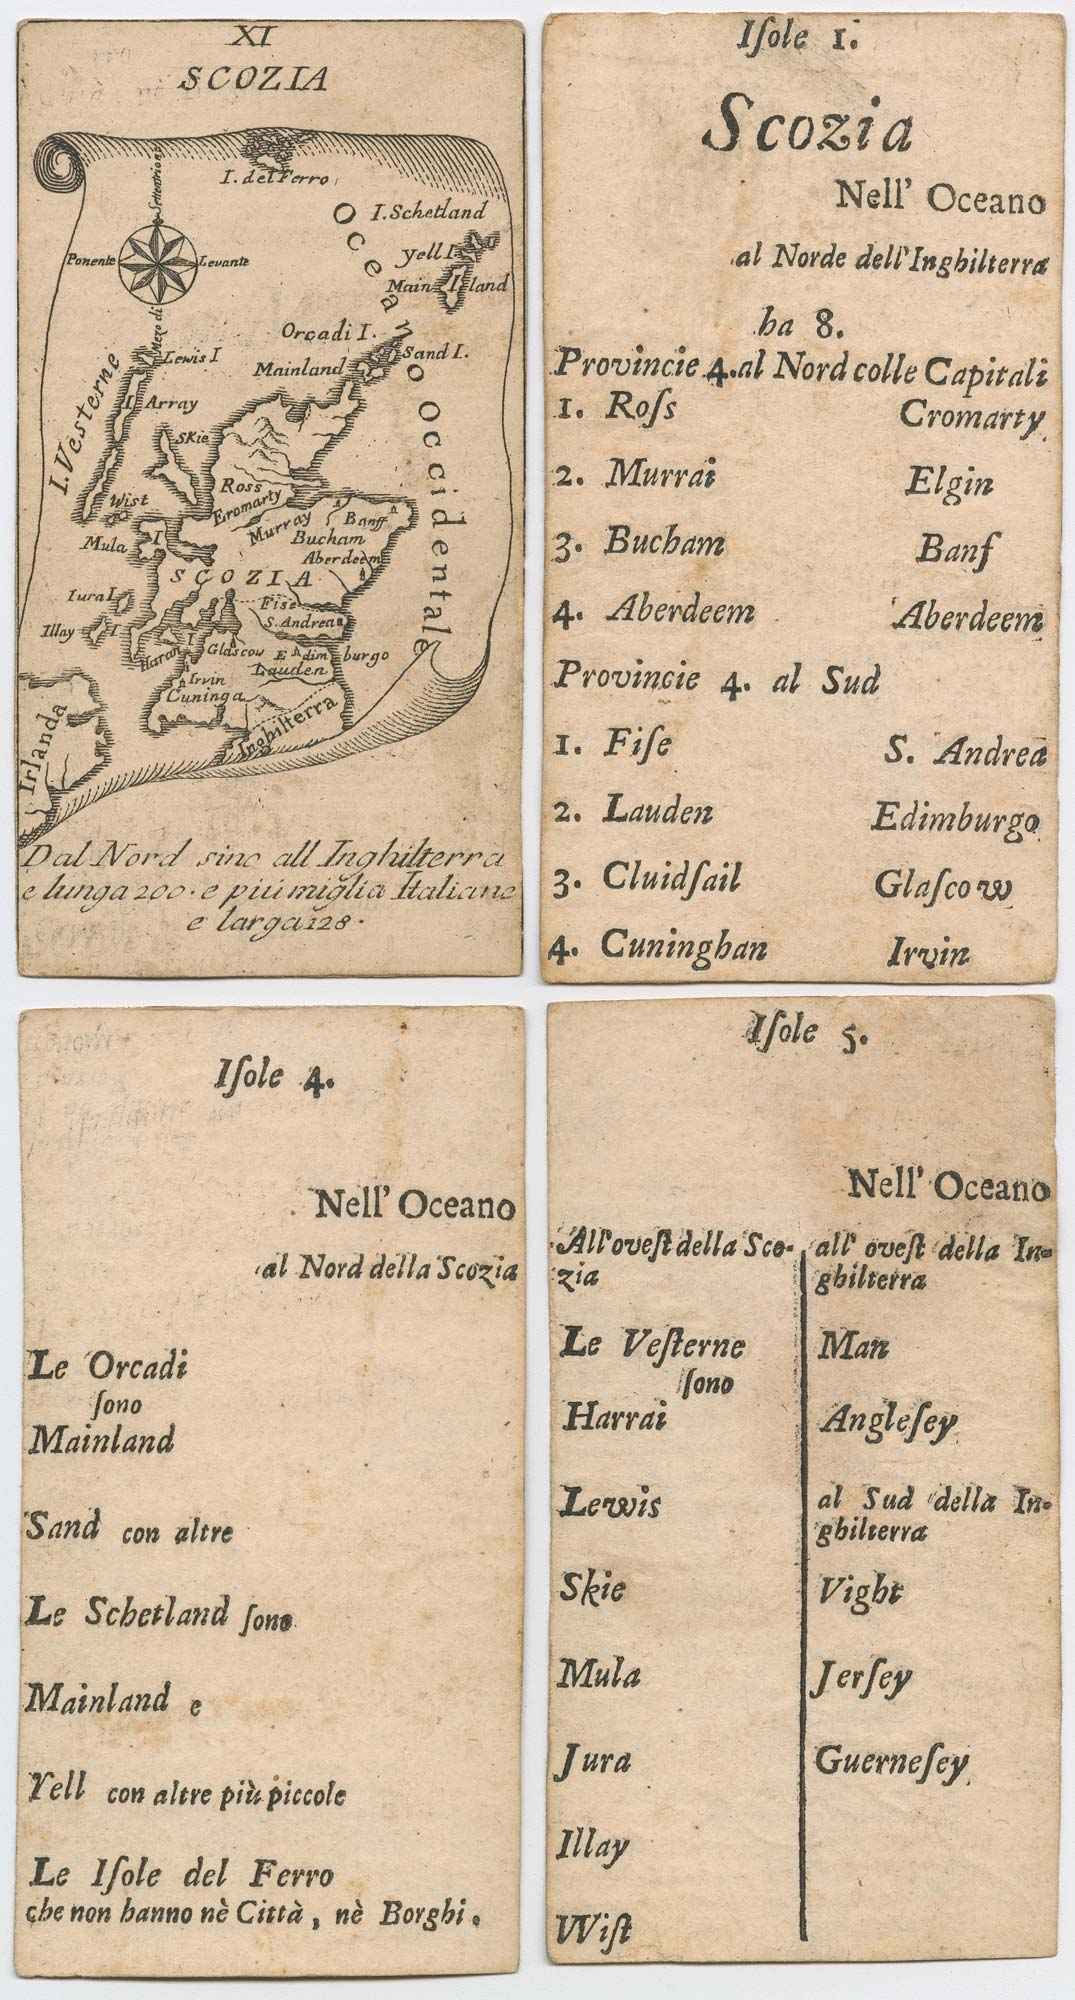 XI
SCOZIA
I. del Ferro
Oceano Occidentale
I. Schetland
Yell I.
Main I. land
Settentrione
Ponente
Levante
Mezo di
Orcadi I.
Mainland
Sand I.
I. Vesterne
Lewis I
I Array
Skie
Wist
Ross
Eromarty
Murray
Banff
Bucham
Aberdeem
Mula I
SCOZIA
Iura I
Fise
S. Andrea
Illay I
Haran I
Glascow
Edimburgo
Lauden
Irvin
Cuninga
Inghilterra
Irlanda
Dal Nord sino all Inghilterra
e lunga 200. e più miglia Italiane
e larga 128.
Iſole 1.
Scozia
Nell' Oceano
al Norde dell'Inghilterra
ha 8.
Provincie 4. al Nord colle Capitali
1. Roſs Cromarty
2. Murrai Elgin
3. Bucham Banf
4. Aberdeem Aberdeem
Provincie 4. al Sud
1. Fiſe S. Andrea
2. Lauden Edimburgo
3. Cluidſail Glaſcow
4. Cuninghan Irvin
Iſole 4.
Nell' Oceano
al Nord della Scozia
Le Orcadi
ſono
Mainland
Sand con altre
Le Schetland ſono
Mainland e
Yell con altre più piccole
Le Iſole del Ferro
che non hanno nè Città, nè Borghi.
Iſole 5.
Nell' Oceano
All'oveſt della Sco-
zia
Le Veſterne
ſono
Harrai
Lewis
Skie
Mula
Jura
Illay
Wiſt
all' oveſt della In-
ghilterra
Man
Angleſey
al Sud della In-
ghilterra
Vight
Jerſey
Guerneſey